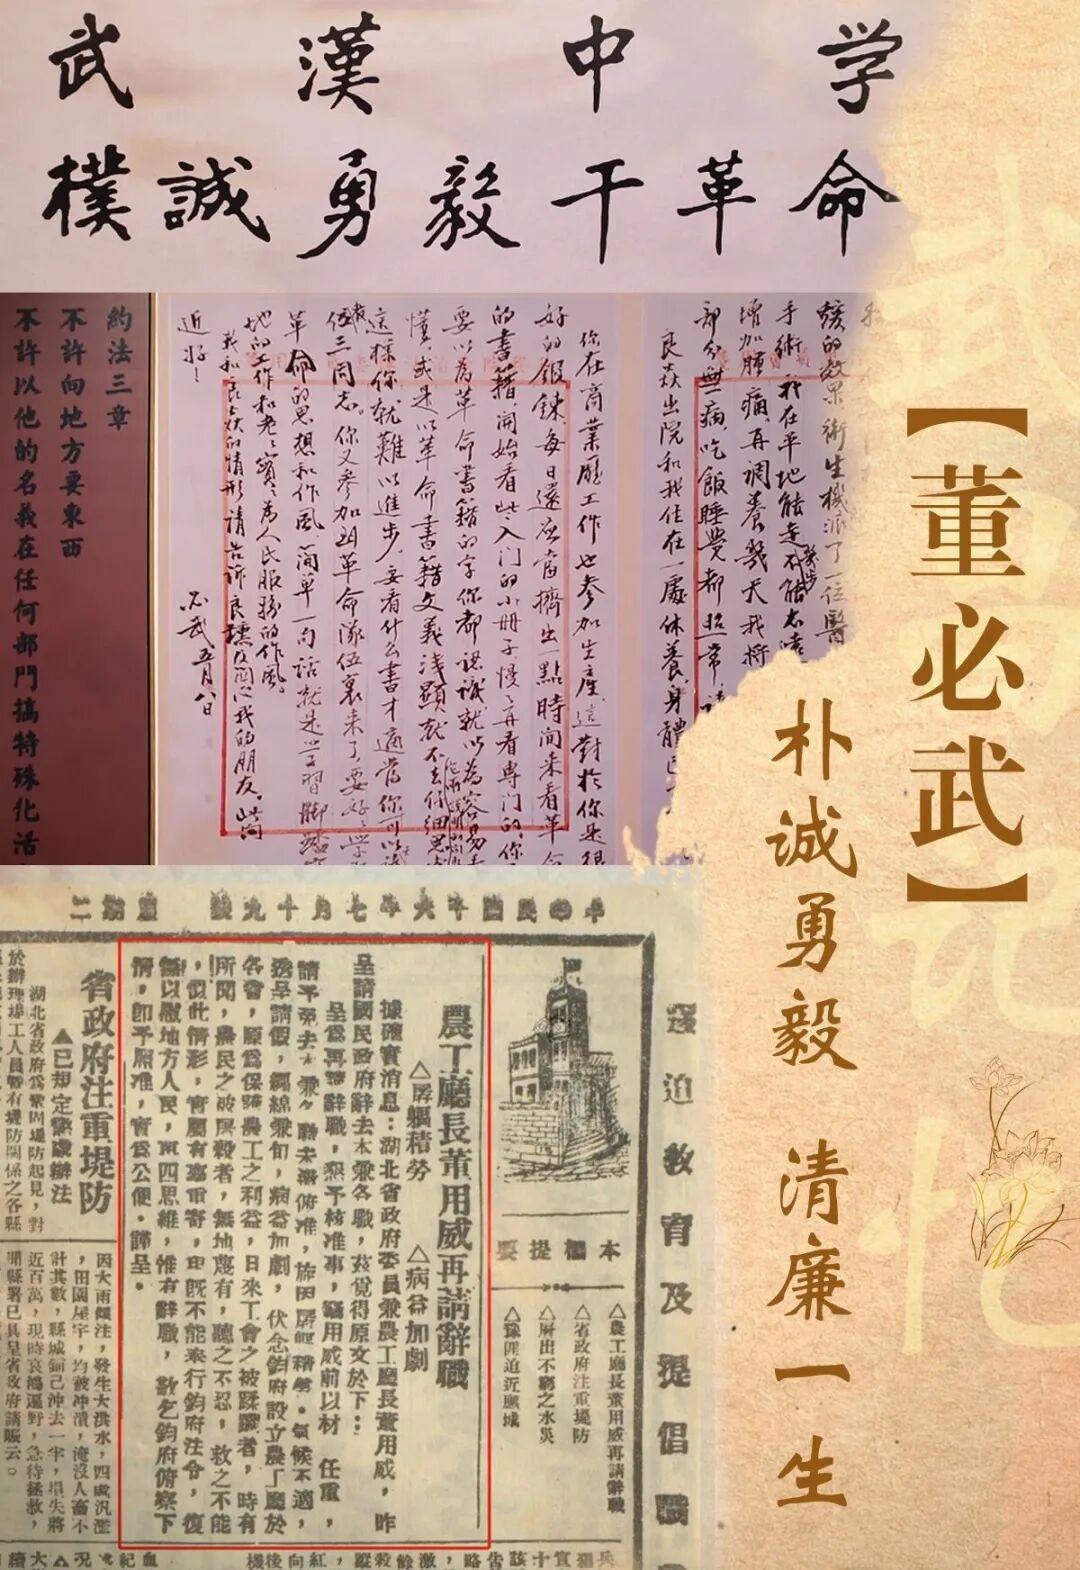 武漢中学
樸誠勇毅干革命
約法三章
不許向地方要東西
不許以他的名義在任何部門搞特殊化活
手術,我在平地能走,不能去
增加腰痛,再調養幾天我將
部分無病,吃飯睡覺都照常,請
良焱出院和我住在一處休養,身體已
你在商業廳工作也參加生產,這對於你是很
好的鍛鍊,每日還应當擠出一點時間来看革命
的書籍,開始看些入门的小册子慢々再看專门的,你
要以為革命書籍的字你都認識就以為容易
懂,或是以革命書籍文義浅顯就不去仔细思
這様你就難以進步,要看什么書才適當你可以
伍三同志。你又參加到革命隊伍裏来了,要好々学
革命的思想和作風,简單一句話就是学習脚踏
地的工作和老々實々為人民服務的作風。
我和良焱的情形請告訴良
我的朋友。此问
近好!
必武 五月八日
【董必武】
朴诚勇毅 清廉一生
中華民國十六年七月十九號 星期二
農工廳長董用威再請辭職
△孱軀積勞 △病益加劇
據確實消息:湖北省政府委員兼農工廳長董用威,昨
呈請國民政府辭去本兼各職,茲覓得原文於下:
呈為再請辭職,懇予核准事,竊用威前以材 任重,
請予免去本兼各職未蒙俯准,旋因孱軀積勞,氣候不適,
遂呈請假,纏綿兼旬,病益加劇,伏念鈞府設立農工廳於
各省,原為保障農工之利益,日來工會之被蹂躪者,時有
所聞,農民之被屠殺者,無地蔑有,聽之不忍,救之不能
,似此情形,實屬有辜重寄,用既不能奉行鈞府法令,復
無以慰地方人民,再四思維,惟有辭職,敬乞鈞府俯察下
情,卽予照准,實為公便,謹呈。
省政府注重堤防
△已規定懲處辦法
湖北省政府為鞏固堤防起見,對
於辦理堤工人員暨有堤防關係之各縣
因大雨傾注,發生大洪水,四處汎濫
,田園屋宇,均被冲潰,淹沒人畜不
計其數,縣城鎮已沖去一半,損失將
近百萬,現時哀鴻遍野,急待拯救,
聞縣署已具呈省政府請賑云。
本欄提要
△農工廳長董用威再請辭職
△省政府注重堤防
△層出不窮之水災
△豫匪迫近應城
迫教育及提倡職